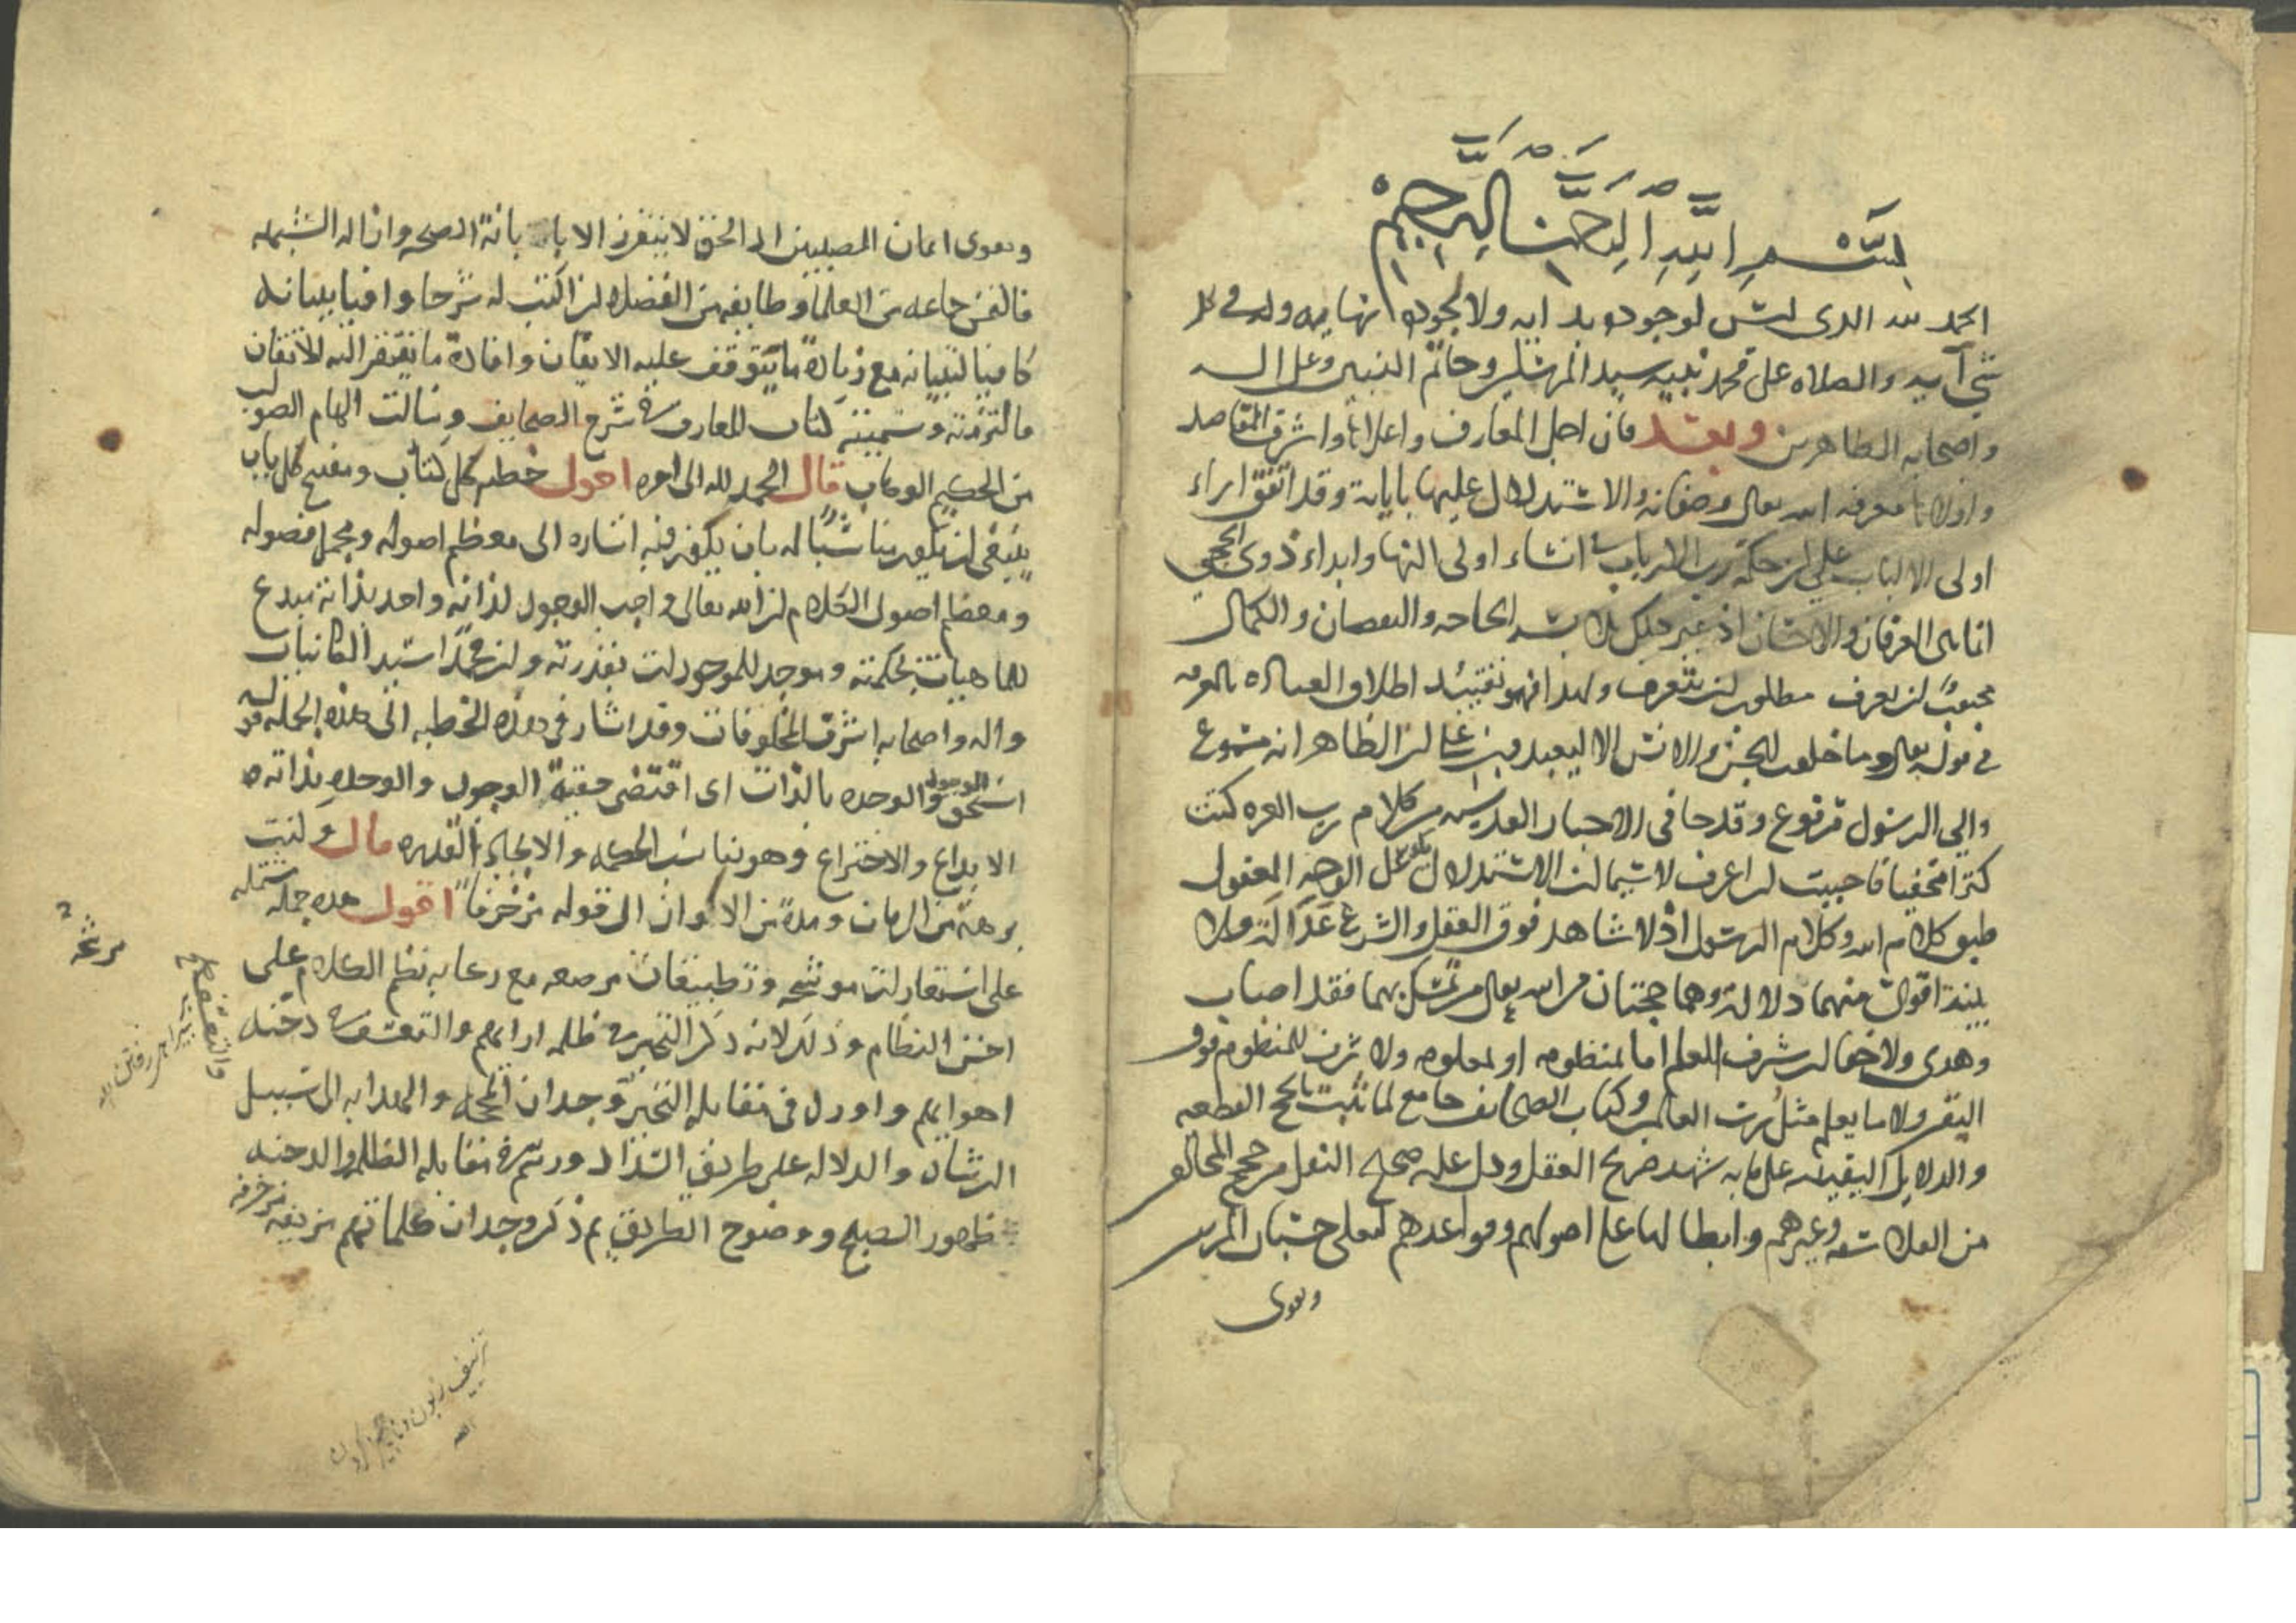 بسم الله الرحمن الرحيم
الحمد لله الذى ليس لوجوده بداية ولا لجوده نهاية وله فى كل
شئ آية والصلاة على محمد نبيه سيد المرسلين وخاتم النبيين وعلى اله
واصحابه الطاهرين وبعد فان اجل المعارف واعلاها واشرف المقاصد
واولاها معرفة الله تعالى وصفاته والاستدلال عليها باياته وقد اتفق اراء
اولى الالباب على ان حكمة رب الارباب فى انشاء اولى النها وابداء ذوى الحجى
العرفان والاحسان اذ غير الحاجة والنقصان والكمال
محبوب لان يعرف مطلوب لان يتعرف ولهذا اطلاق العبادة بالمعرفة
فى قوله تعالى وما خلقت الجن والانس الا ليعبدون على ان الظاهر انه مسموع
والى الرسول مرفوع وقد جا فى الاخبار القدسية من كلام رب العزة كنت
كنزا مخفيا فاحببت ان اعرف لا سيما ان الاستدلال على الوجه المعقول
طبق كلام الله وكلام الرسول اذ لا شاهد فوق العقل والشرع عدالة ولا
بينة اقوى منهما دلالة وهما حجتان من الله تعالى من تمسك بهما فقد اصاب
وهدى ولا خفا ان شرف العلم اما بمنظومه او بمعلومه ولا شرف للمنظوم فوق
اليقين ولا ما يعلم مثل رب العالمين وكتاب الصحايف جامع لما ثبت بالحجج القطعية
والدلايل اليقينية على ما به شهد صريح العقل ودل عليه صحيح النقل مع حجج المخالفين
من الفلاسفة وغيرهم وابطالها على اصولهم وقواعدهم
وتقوى
وتقوى ايمان المصيبين الى الحق لا يتقرر الا بابانة الصحة وازالة الشبهة
فالتمس جماعة من العلما وطايفة من الفضلا ان اكتب له شرحا وافيا ببيانه
كافيا لتبيانه مع زيادة ما يتوقف عليه الايقان وافادة ما يفتقر اليه الاتقان
فالتزمته وسميته كتاب المعارف فى شرح الصحايف وسالت الهام الصواب
من الحكيم الوهاب قال الحمد لله الى اخره اقول خطبة كل كتاب ومفتح كل باب
ينبغى ان يكون مناسبا له بان يكون فيه اشارة الى معظم اصوله ومجمل فصوله
ومعظم اصول الكلام ان الله تعالى واجب الوجود لذاته واحد بذاته مبدع
للماهيات بحكمته وموجد للموجودات بقدرته وان محمدا سيد الكائنات
واله واصحابه اشرف المخلوقات وقد اشار فى هذه الخطبة الى هذه الجملة قوله
استحق الوجود والوحدة بالذات اى اقتضى حقيقة الوجود والوحدة بذاته
الابداع والاختراع وهو يناسب الحكمة والايجاد القدرة قال وكنت
برهة من الزمان ومدة من الاكوان الى قوله مزخرفا اقول هذه جملة مشتملة
على استعارات موشحة وتطبيقات مرصعة مع رعاية نظم الكلام على
احسن النظام وذلك لانه ذكر التحير فى ظلمة ارائهم والتعسف فى دخنة
اهوايهم واورد فى مقابلة التحير وجدان الحجة والهداية الى سبيل
الرشاد والدلالة على طريق السداد ورسم فى مقابلة الظلمة والدخنة
ظهور الصبح ووضوح الطريق ثم ذكر وجدان كلماتهم مزيفة مزخرفة